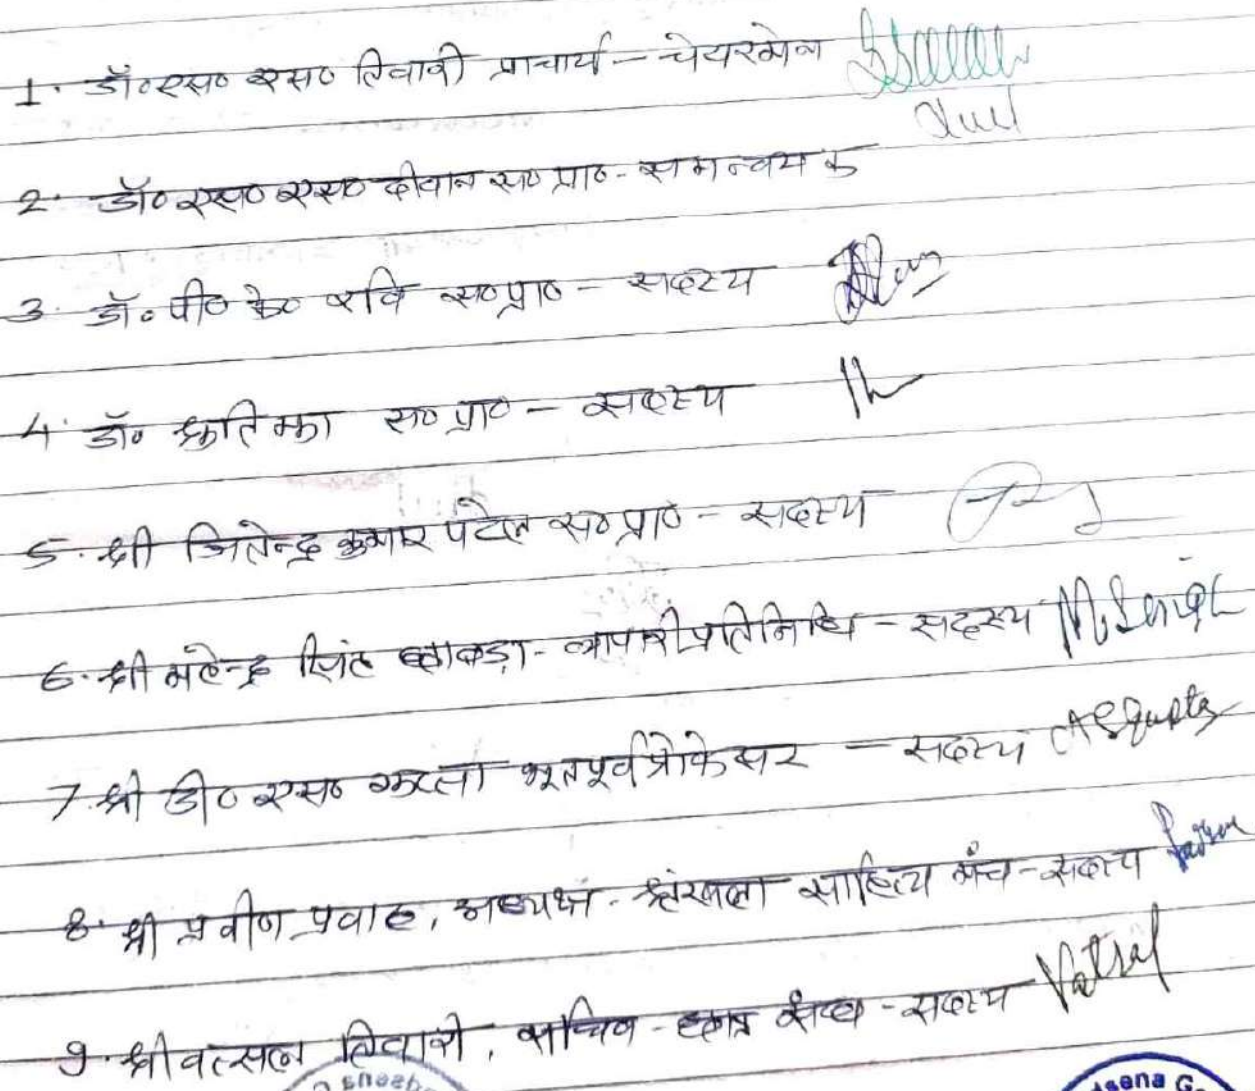 1. डॉ० एस० एस० तिवारी प्राचार्य - चेयरमेन
2. डॉ० एस० एस० दीवान स० प्रा० - समन्वयक
3. डॉ० पी० के० रवि स० प्रा० - सदस्य
4. डॉ० स० प्रा० - सदस्य
5. श्री जितेन्द्र कुमार पटेल स० प्रा० - सदस्य
6. श्री महेन्द्र सिंह छाबड़ा - व्यापारी प्रतिनिधि - सदस्य M Singh
7. श्री डी० एस० भूतपूर्व प्रोफेसर - सदस्य Gupta
8. श्री प्रवीण प्रवाह, अध्यक्ष - श्रृंखला साहित्य मंच - सदस्य
9. श्री वत्सल तिवारी, सचिव - छात्र संघ - सदस्य Vatsal